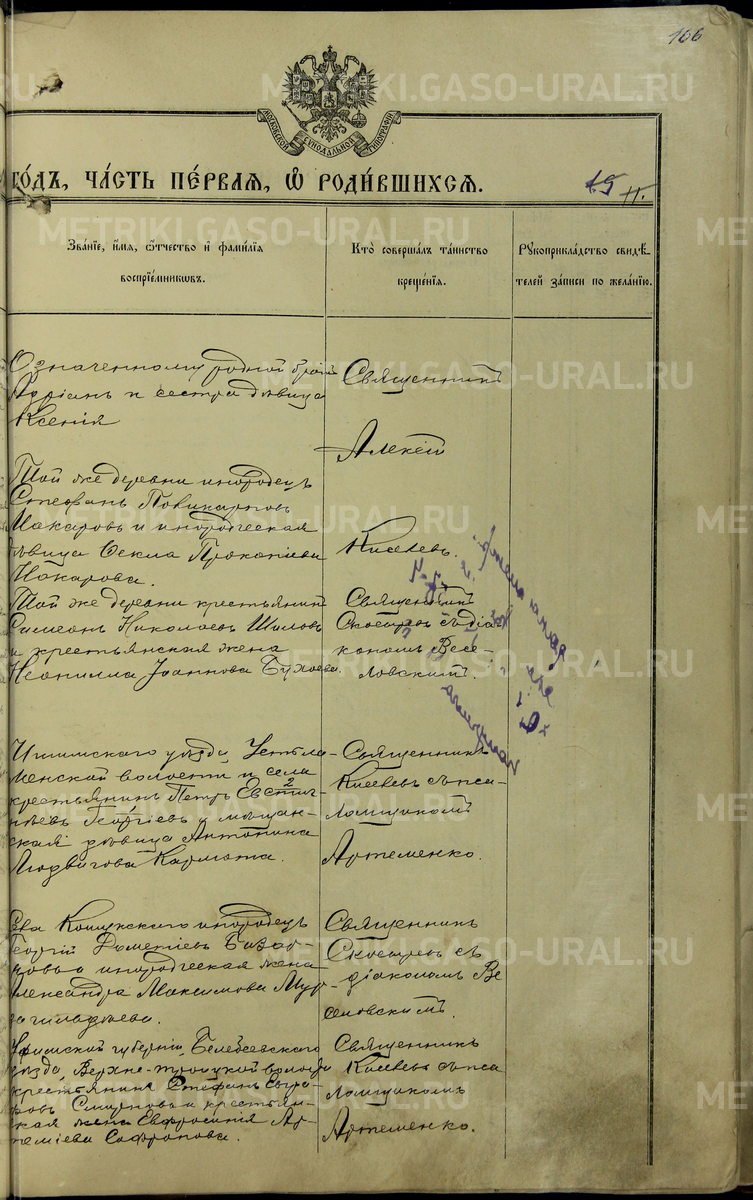 106
МОСКОВСКОЙ СѴНОДАЛЬНОЙ ТИПОГРАФІИ
METRIKI.GASO-URAL.RU
го́дъ, ча́сть пе́рвая, ѡ҆ роди́вшихся.
15 11.
Зва́нїе, и҆́мя, ѻ҆́тчество и҆ фами́лїя
воспрїе́мникѡвъ.
Кто̀ соверша́лъ та́инство
креще́нїѧ.
Рꙋкоприкла́дство свидѣ́-
телей за́писи по жела́нїю.
Означенному родной братъ
Адріанъ и сестра дѣвица
Ксенія
Священникъ
Алексій
Киселевъ.
Той же деревни инородецъ
Стефанъ Поликарповъ
Макаровъ и инородческая
дѣвица Ѳекла Прокопіева
Макарова.
Той же деревни крестьянинъ
Симеонъ Николаевъ Шиловъ
и крестьянская жена
Неонилла Іоаннова
Священникъ
съ діа-
кономъ Весе-
ловскимъ.
Ишимскаго уѣзда Устьла-
менской волости и села
крестьянинъ Петръ
Георгіевъ и мѣщан-
ская дѣвица Антонина
Людвигова
Священникъ
Киселевъ съ пса-
ломщикомъ
Артеменко.
инородецъ
Георгій Дометіевъ
и инородческая жена
Александра Максимова
Священникъ
съ
діакономъ Ве
селовскимъ.
Уфимской губерніи, Белебеевскаго
уѣзда, Верхне-троицкой волости
крестьянинъ Стефанъ
Смирновъ и крестьян-
ская жена Евфросинія Ар-
теміева Сафронова.
Священникъ
Киселевъ съ пса
ломщикомъ
Артеменко.